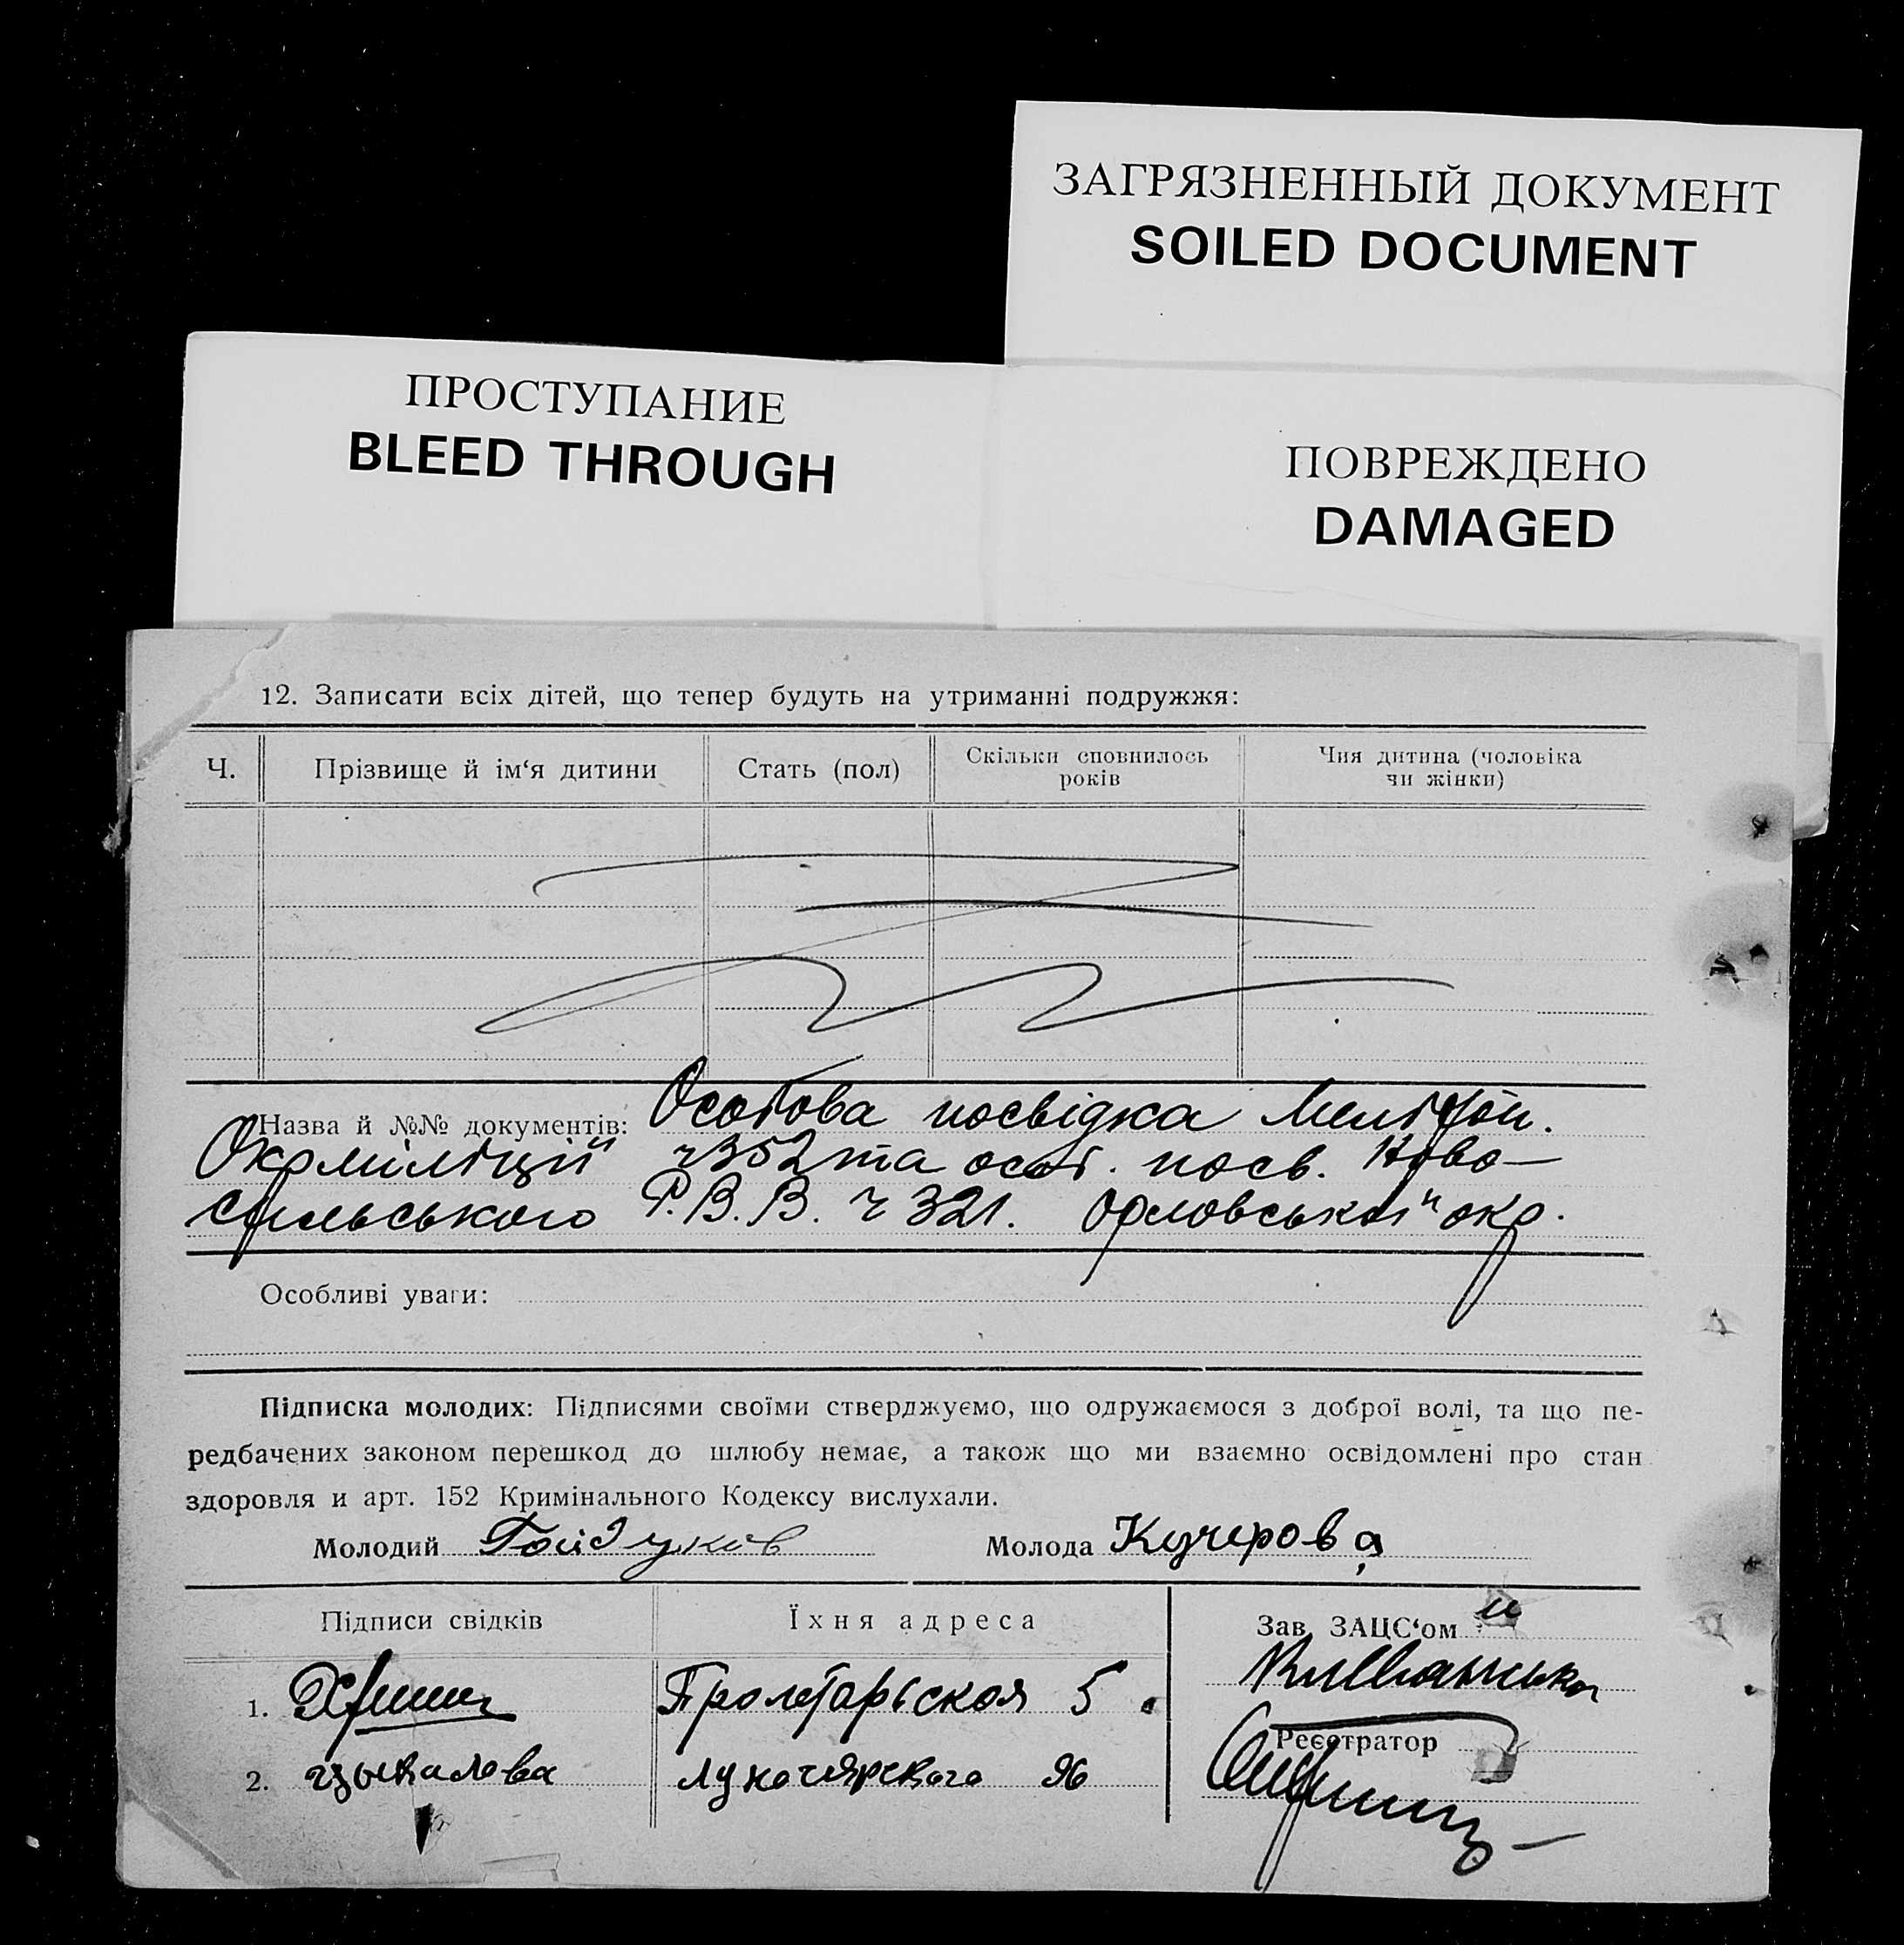 ЗАГРЯЗНЕННЫЙ ДОКУМЕНТ
SOILED DOCUMENT
ПРОСТУПАНИЕ
BLEED THROUGH
ПОВРЕЖДЕНО
DAMAGED
12. Записати всіх дітей, що тепер будуть на утриманні подружжя:
Ч. Прізвище й ім‘я дитини Стать (пол) Скільки сповнилось років Чия дитина (чоловіка чи жінки)
Назва й №№ документів: Особова посвідка
Окрміліції ч 352 та особ. посв. Ново-
сільського Р.В.В. ч 321. Орловської окр.
Особливі уваги:
Підписка молодих: Підписями своїми стверджуємо, що одружаємося з доброї волі, та що пе-
редбачених законом перешкод до шлюбу немає, а також що ми взаємно освідомлені про стан
здоровля и арт. 152 Кримінального Кодексу вислухали.
Молодий Гайдуков Молода Кучерова
Підписи свідків Їхня адреса Зав. ЗАЦС‘ом
1. Пролетарьская 5
Реєстратор
2. Луначярскаго 96